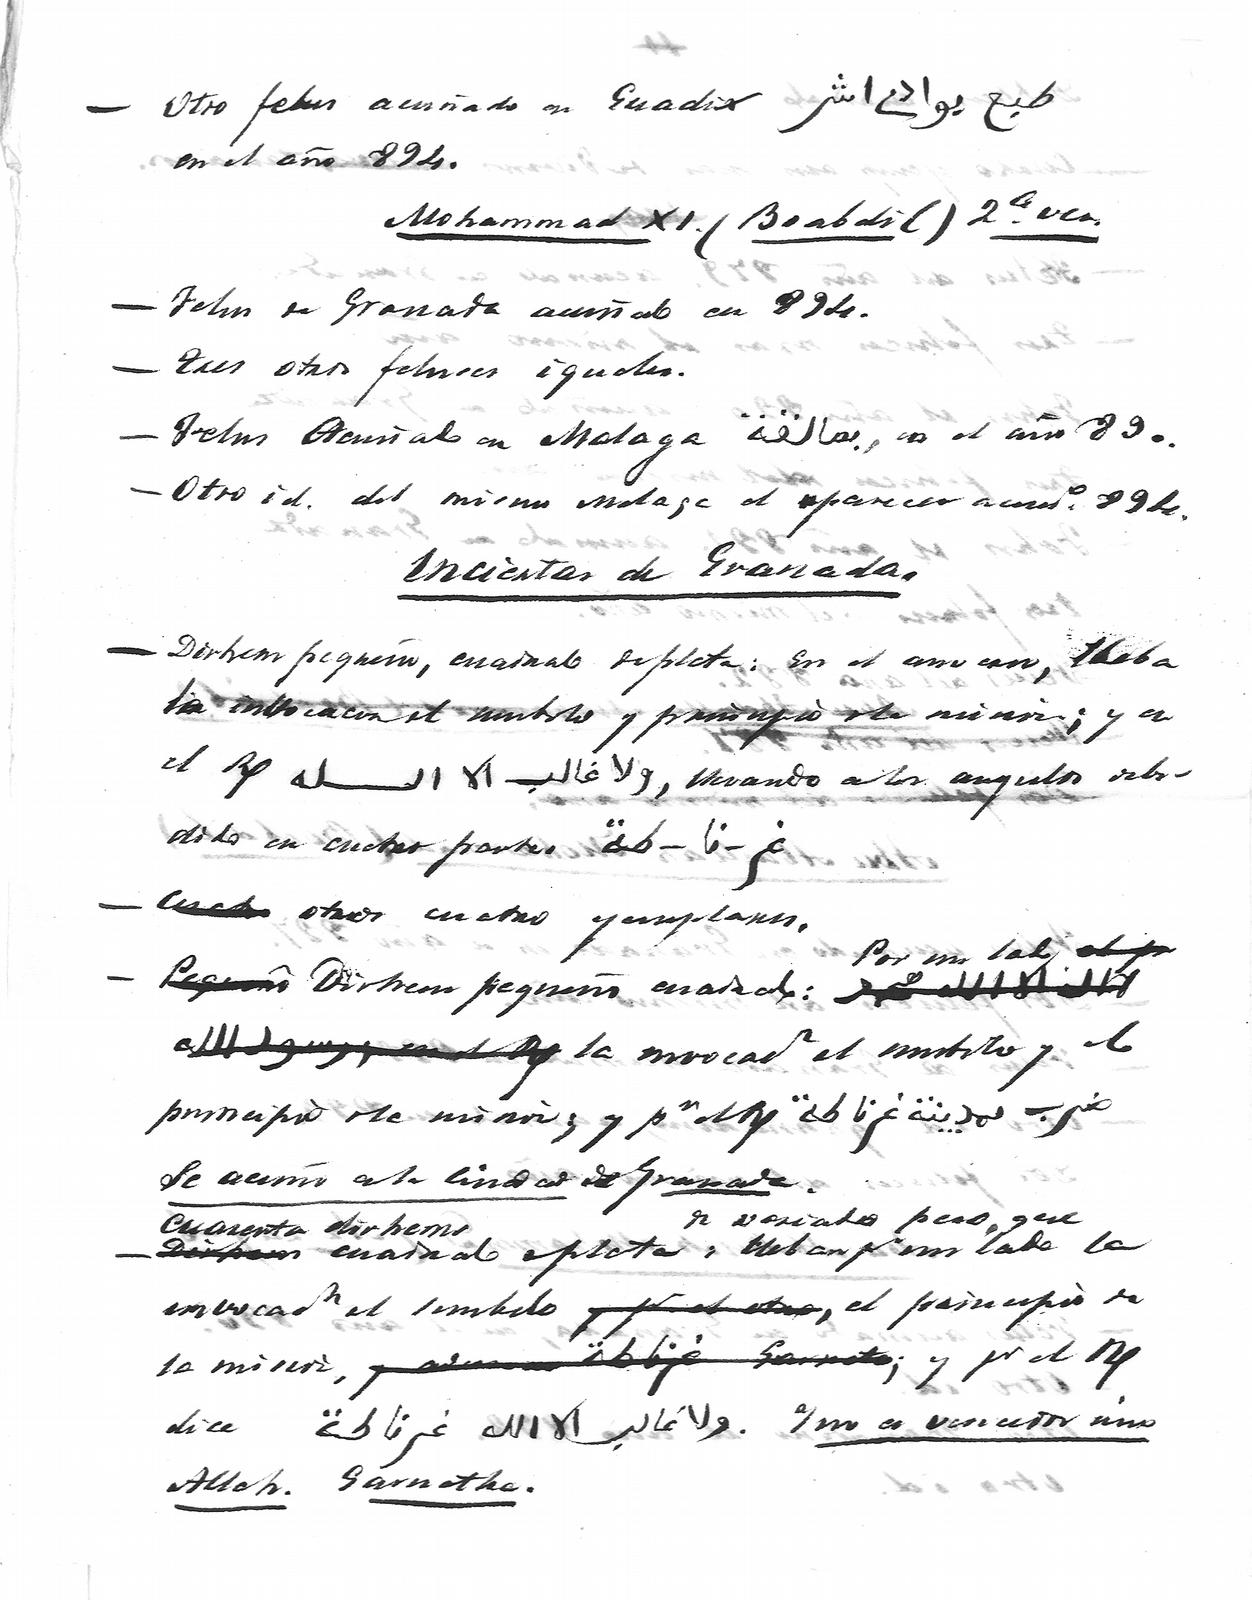 — Otro felus acuñado en Guadix طبع بوادي اش
en el año 894.
Mohammad XI. (Boabdil) 2ª vez.
— Felus de Granada acuñado en 894.
— Tres otros feluses iguales.
— Felus Acuñado en Malaga بمالقة, en el año 89..
— Otro id. del mismo Malaga al parecer acuñdº. 894.
Inciertas de Granada.
— Dirhem pequeño, cuadrado de plata: en el anverso, lleba
la invocacion el simbolo y principio de la mision; y en
el Rf ولا غالب الا الله, llevando a los angulos
dido en cuatro partes غر - نا - طة
— otros cuatro ejemplares.
Por un lado
— Pequeño Dirhem pequeño cuadrado: لا اله الا الله محمد
رسول الله, en el Rf la invocadn el simbolo y el
principio de la mision; y pr el Rf ضرب بمدينة غرناطة
Se acuñó en la Ciudad de Granada.
Cuarenta dirhems de variados peso, que
— Dirhem cuadrado plata: lleban pr un lado la
invocadn el simbolo y pr el otro, el principio de
la mision, غرناطة Garnata; y pr el Rf
dice ولا غالب الا الله غرناطة. Y no es vencedor sino
Allah. Garnatha.